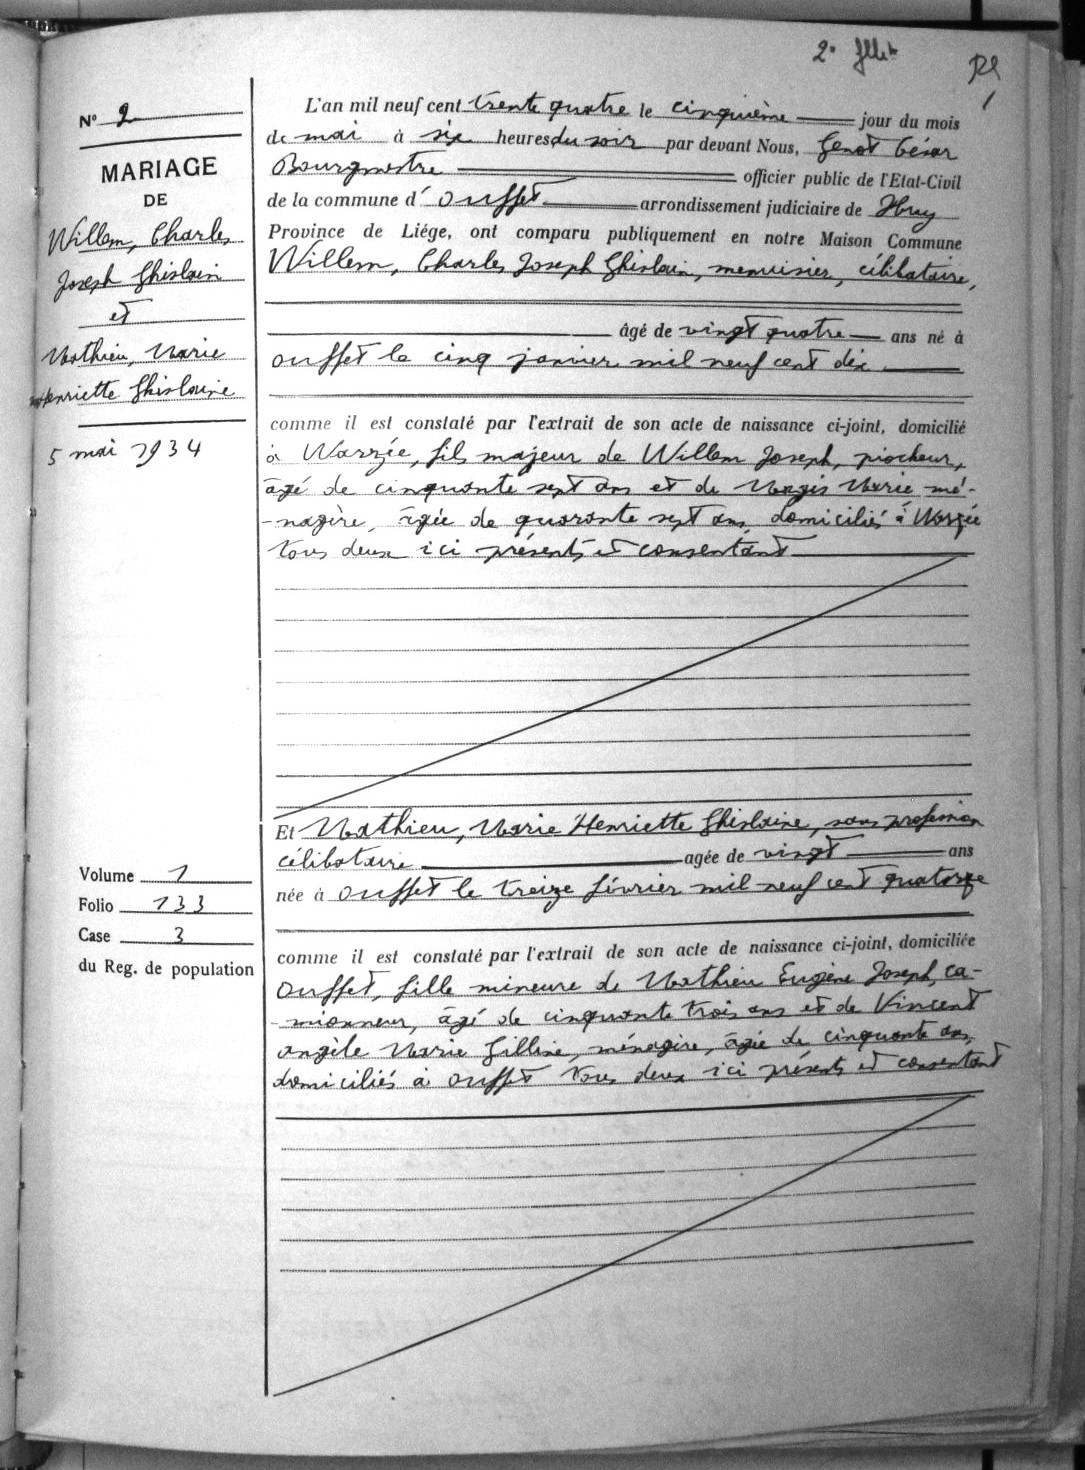 2e fllet
N° 2
MARIAGE
DE
Willem, Charles
Joseph Ghislain
et
Mathieu, Marie
Henriette Ghislaine
5 mai 1934
L'an mil neuf cent trente quatre le cinquième jour du mois
de mai à six heures du soir par devant Nous, Genot César
Bourgmestre officier public de l'Etat-Civil
de la commune d' Ouffet arrondissement judiciaire de Huy
Province de Liége, ont comparu publiquement en notre Maison Commune
Willem, Charles Joseph Ghislain, menuisier, célibataire,
âgé de vingt quatre ans né à
Ouffet le cinq janvier mil neuf cent dix
comme il est constaté par l'extrait de son acte de naissance ci-joint, domicilié
à Warzée, fils majeur de Willem Joseph, piocheur,
âgé de cinquante sept ans et de Marie mé-
-nagère, âgée de quarante sept ans, domiciliés à Warzée
tous deux ici présents et consentant
Et Mathieu, Marie Henriette Ghislaine, sans profession
célibataire agée de vingt ans
née à Ouffet le treize février mil neuf cent quatorze
comme il est constaté par l'extrait de son acte de naissance ci-joint, domiciliée
Ouffet, fille mineure de Mathieu Eugène Joseph, ca-
-mionneur, âgé de cinquante trois ans et de Vincent
Angèle Marie, ménagère, âgée de cinquante ans,
domiciliés à Ouffet tous deux ici présents et consentant
Volume 1
Folio 133
Case 3
du Reg. de population